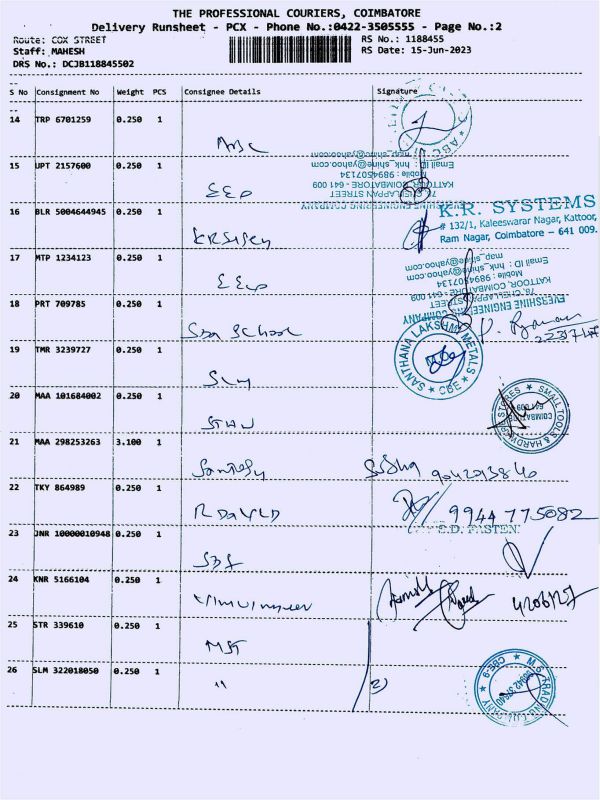 THE PROFESSIONAL COURIERS, COIMBATORE
Delivery Runsheet - PCX - Phone No.:0422-3505555 - Page No.:2
Route: COX STREET
RS No.: 1188455
Staff: MAHESH
RS Date: 15-Jun-2023
DRS No.: DCJB118845502
S No Consignment No Weight PCS Consignee Details Signature
14 TRP 6701259 0.250 1
ABC
15 UPT 2157600 0.250 1
EEC
EVERSHINE ENGINEERING COMPANY
KATTOOR, COIMBATORE - 641 009
Mobile : 9894507134
16 BLR 5004644945 0.250 1
K.R. SYSTEMS
# 132/1, Kaleeswarar Nagar, Kattoor,
Ram Nagar, Coimbatore - 641 009.
17 MTP 1234123 0.250 1
EEC
EVERSHINE ENGINEERING COMPANY
78, CHELLAPPAN STREET
KATTOOR, COIMBATORE - 641 009
Mobile : 9894507134
18 PRT 709785 0.250 1
SDA School
19 TMR 3239727 0.250 1
SLM
★ SANTHANA LAKSHMI METALS ★ CBE
20 MAA 101684002 0.250 1
STHW
SMALL TOOLS & HARDWARE STORES
COIMBATORE
641 009
21 MAA 298253263 3.100 1
22 TKY 864989 0.250 1
R DAVID
9944775082
S.D. FASTEN
23 JNR 10000010948 0.250 1
24 KNR 5166104 0.250 1
25 STR 339610 0.250 1
MST
26 SLM 322018050 0.250 1
"